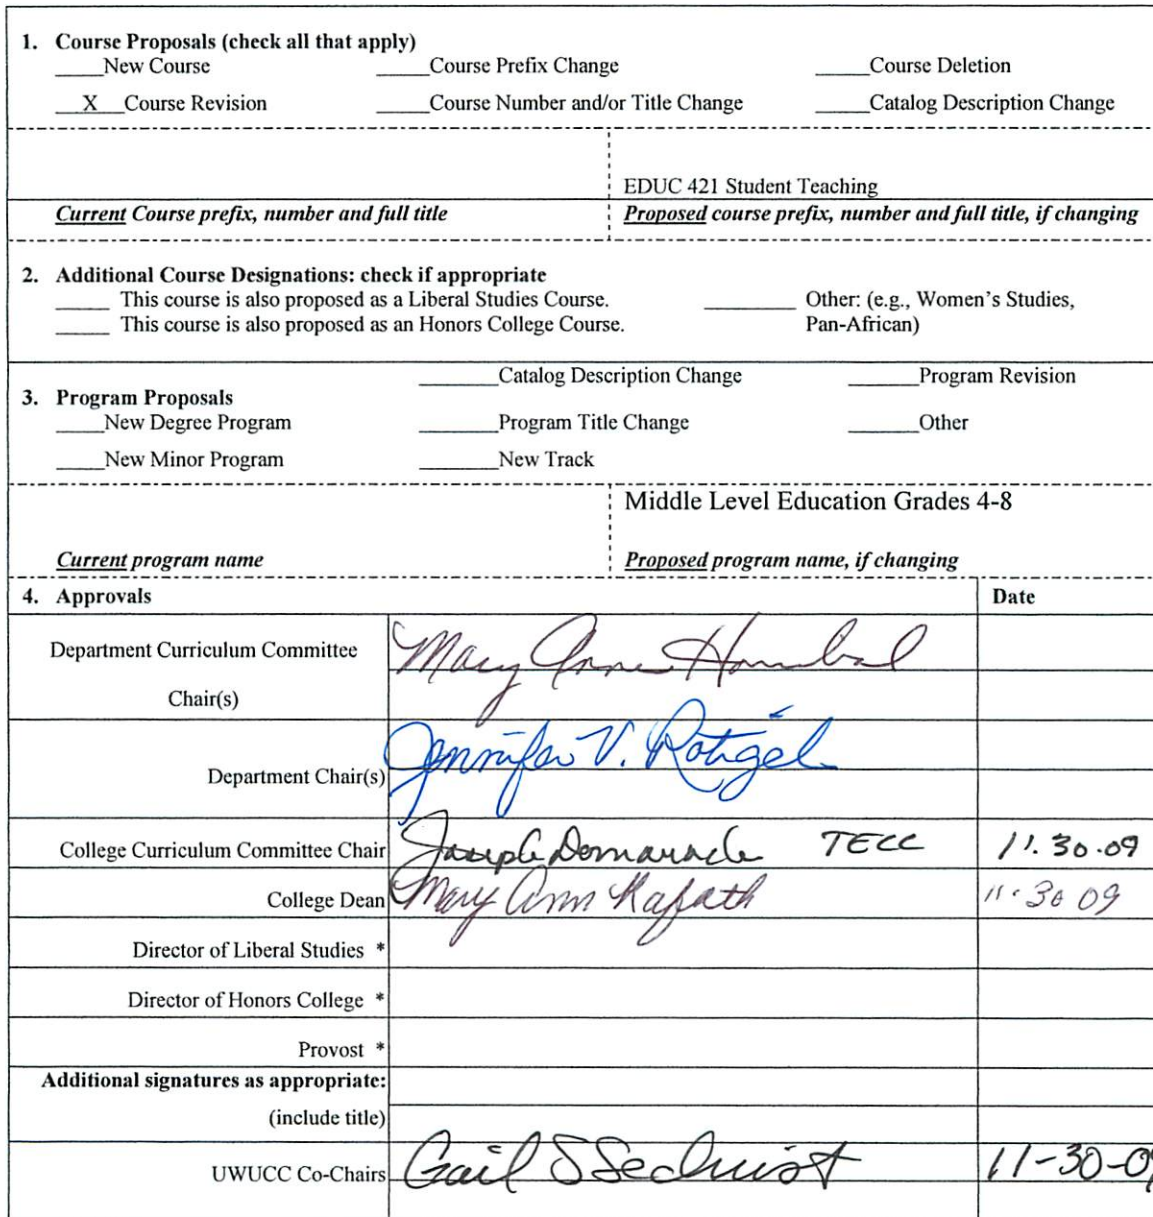 1. Course Proposals (check all that apply)
_____New Course _____Course Prefix Change _____Course Deletion
__X__Course Revision _____Course Number and/or Title Change _____Catalog Description Change
EDUC 421 Student Teaching
Current Course prefix, number and full title Proposed course prefix, number and full title, if changing
2. Additional Course Designations: check if appropriate
_____ This course is also proposed as a Liberal Studies Course. _____ Other: (e.g., Women's Studies,
_____ This course is also proposed as an Honors College Course. Pan-African)
_____Catalog Description Change _____Program Revision
3. Program Proposals
_____New Degree Program _____Program Title Change _____Other
_____New Minor Program _____New Track
Middle Level Education Grades 4-8
Current program name Proposed program name, if changing
4. Approvals Date
Department Curriculum Committee
Chair(s) Mary Anne
Department Chair(s) Jennifer V. Rotigel
College Curriculum Committee Chair Joseph Domaracki TECC 11.30.09
College Dean Mary Ann Rafoth 11.30 09
Director of Liberal Studies *
Director of Honors College *
Provost *
Additional signatures as appropriate:
(include title)
UWUCC Co-Chairs Gail S Sechrist 11-30-09